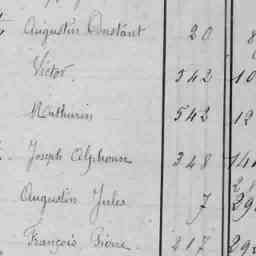 Augustin Constant 20 8
Victor. 342 10
Mathurin 542 12
Joseph Alphonse 348 141
Augustin Jules 7 29
François Pierre 217 29